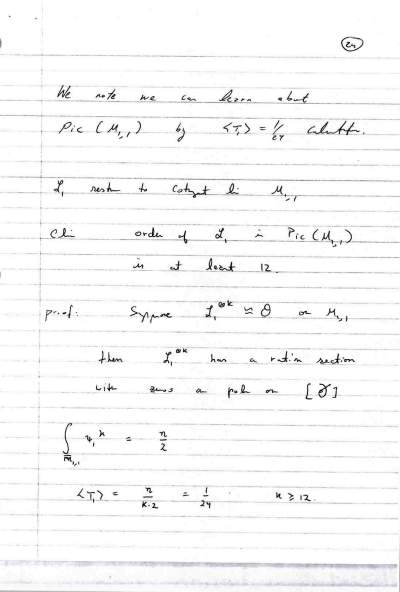 24
We note we can learn about
Pic (M_{1,1}) by <τ_1> = 1/24 calculation.
L_1 restr to cotangent li M_{1,1}
Cli order of L_1 in Pic(M_{1,1})
is at least 12.
proof: Suppose L_1^{⊗k} ≃ O on M_{1,1}
then L_1^{⊗k} has a ration section
with zeros on pole on [ ]
∫_{\overline{M}_{1,1}} ψ_1^k = n/2
<τ_1> = n/k·2 = 1/24 k ≥ 12.